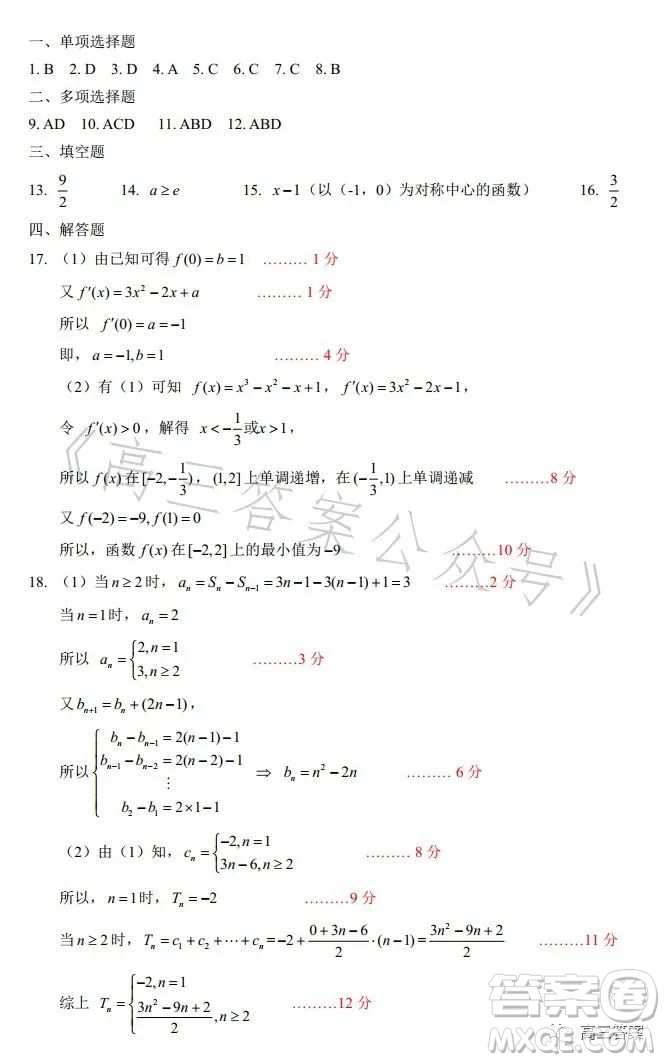 一、单项选择题
1. B 2. D 3. D 4. A 5. C 6. C 7. C 8. B
二、多项选择题
9. AD 10. ACD 11. ABD 12. ABD
三、填空题
13. 9/2 14. a≥e 15. x−1（以（-1，0）为对称中心的函数） 16. 3/2
四、解答题
17. （1）由已知可得 f(0)=b=1 ………1 分
又 f′(x)=3x²−2x+a ………1 分
所以 f′(0)=a=−1
即，a=−1,b=1 ………4 分
（2）有（1）可知 f(x)=x³−x²−x+1，f′(x)=3x²−2x−1，
令 f′(x)>0，解得 x<−1/3或x>1，
所以 f(x)在[−2,−1/3)，(1,2]上单调递增，在(−1/3,1)上单调递减 ………8 分
又 f(−2)=−9, f(1)=0
所以，函数 f(x)在[−2,2]上的最小值为−9 ………10 分
18. （1）当n≥2时，aₙ=Sₙ−Sₙ₋₁=3n−1−3(n−1)+1=3 ………2 分
当n=1时，aₙ=2
所以 aₙ={2,n=1
3,n≥2 ………3 分
又bₙ₊₁=bₙ+(2n−1)，
所以{bₙ−bₙ₋₁=2(n−1)−1
bₙ₋₁−bₙ₋₂=2(n−2)−1
⋮
b₂−b₁=2×1−1 ⇒ bₙ=n²−2n ………6 分
（2）由（1）知，cₙ={−2,n=1
3n−6,n≥2 ………8 分
所以，n=1时，Tₙ=−2 ………9 分
当n≥2时，Tₙ=c₁+c₂+⋯+cₙ=−2+(0+3n−6)/2·(n−1)=(3n²−9n+2)/2 ………11 分
综上 Tₙ={−2,n=1
(3n²−9n+2)/2,n≥2 ………12 分
《高三答案公众号》
答案圈
高三答案